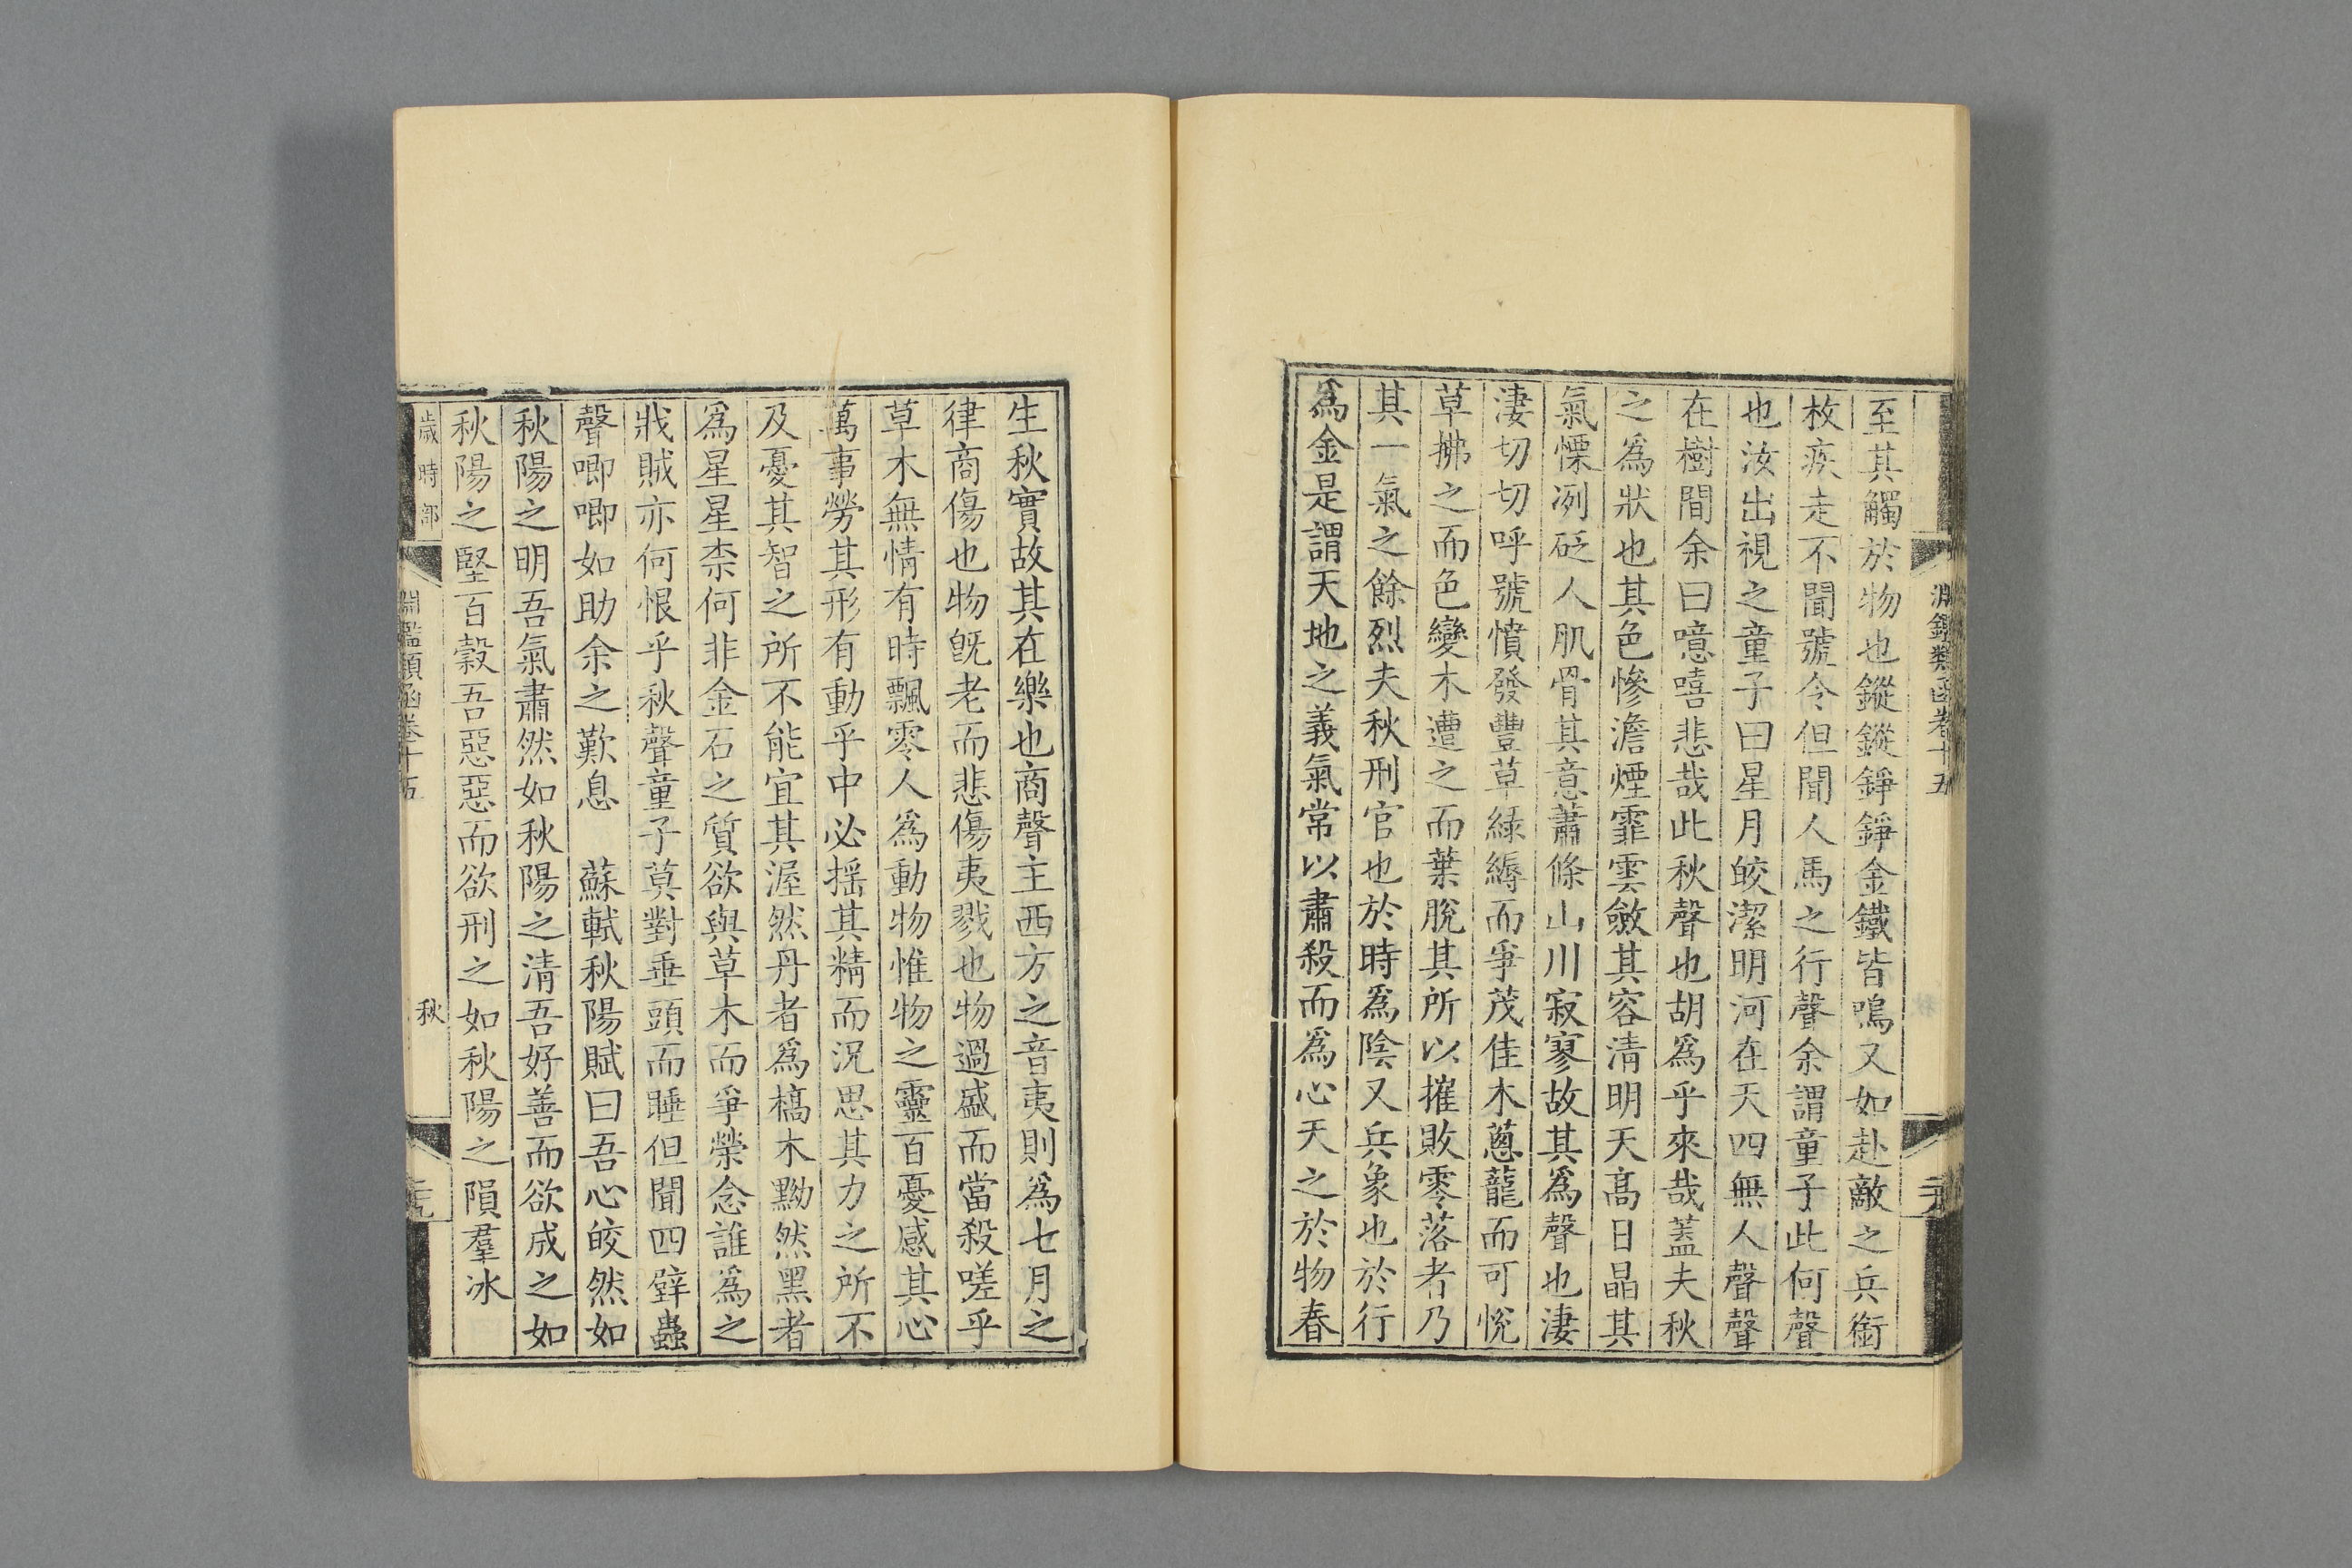 淵鑑類函卷十五
至其觸於物也鏦鏦錚錚金鐵皆鳴又如赴敵之兵銜
枚疾走不聞號令但聞人馬之行聲余謂童子此何聲
也汝出視之童子曰星月皎潔明河在天四無人聲聲
在樹間余曰噫嘻悲哉此秋聲也胡爲乎來哉蓋夫秋
之爲狀也其色慘澹煙霏雲斂其容清明天高日晶其
氣慄冽砭人肌骨其意蕭條山川寂寥故其爲聲也淒
淒切切呼號憤發豐草綠縟而爭茂佳木蔥蘢而可悅
草拂之而色變木遭之而葉脫其所以摧敗零落者乃
其一氣之餘烈夫秋刑官也於時爲陰又兵象也於行
爲金是謂天地之義氣常以肅殺而爲心天之於物春
生秋實故其在樂也商聲主西方之音夷則爲七月之
律商傷也物旣老而悲傷夷戮也物過盛而當殺嗟乎
草木無情有時飄零人爲動物惟物之靈百憂感其心
萬事勞其形有動乎中必揺其精而況思其力之所不
及憂其智之所不能宜其渥然丹者爲槁木黝然黑者
爲星星柰何非金石之質欲與草木而爭榮念誰爲之
戕賊亦何恨乎秋聲童子莫對垂頭而睡但聞四壁蟲
聲唧唧如助余之歎息　蘇軾秋陽賦曰吾心皎然如
秋陽之明吾氣肅然如秋陽之清吾好善而欲成之如
秋陽之堅百穀吾惡惡而欲刑之如秋陽之隕羣冰
歲時部
淵鑑類函卷十五
秋